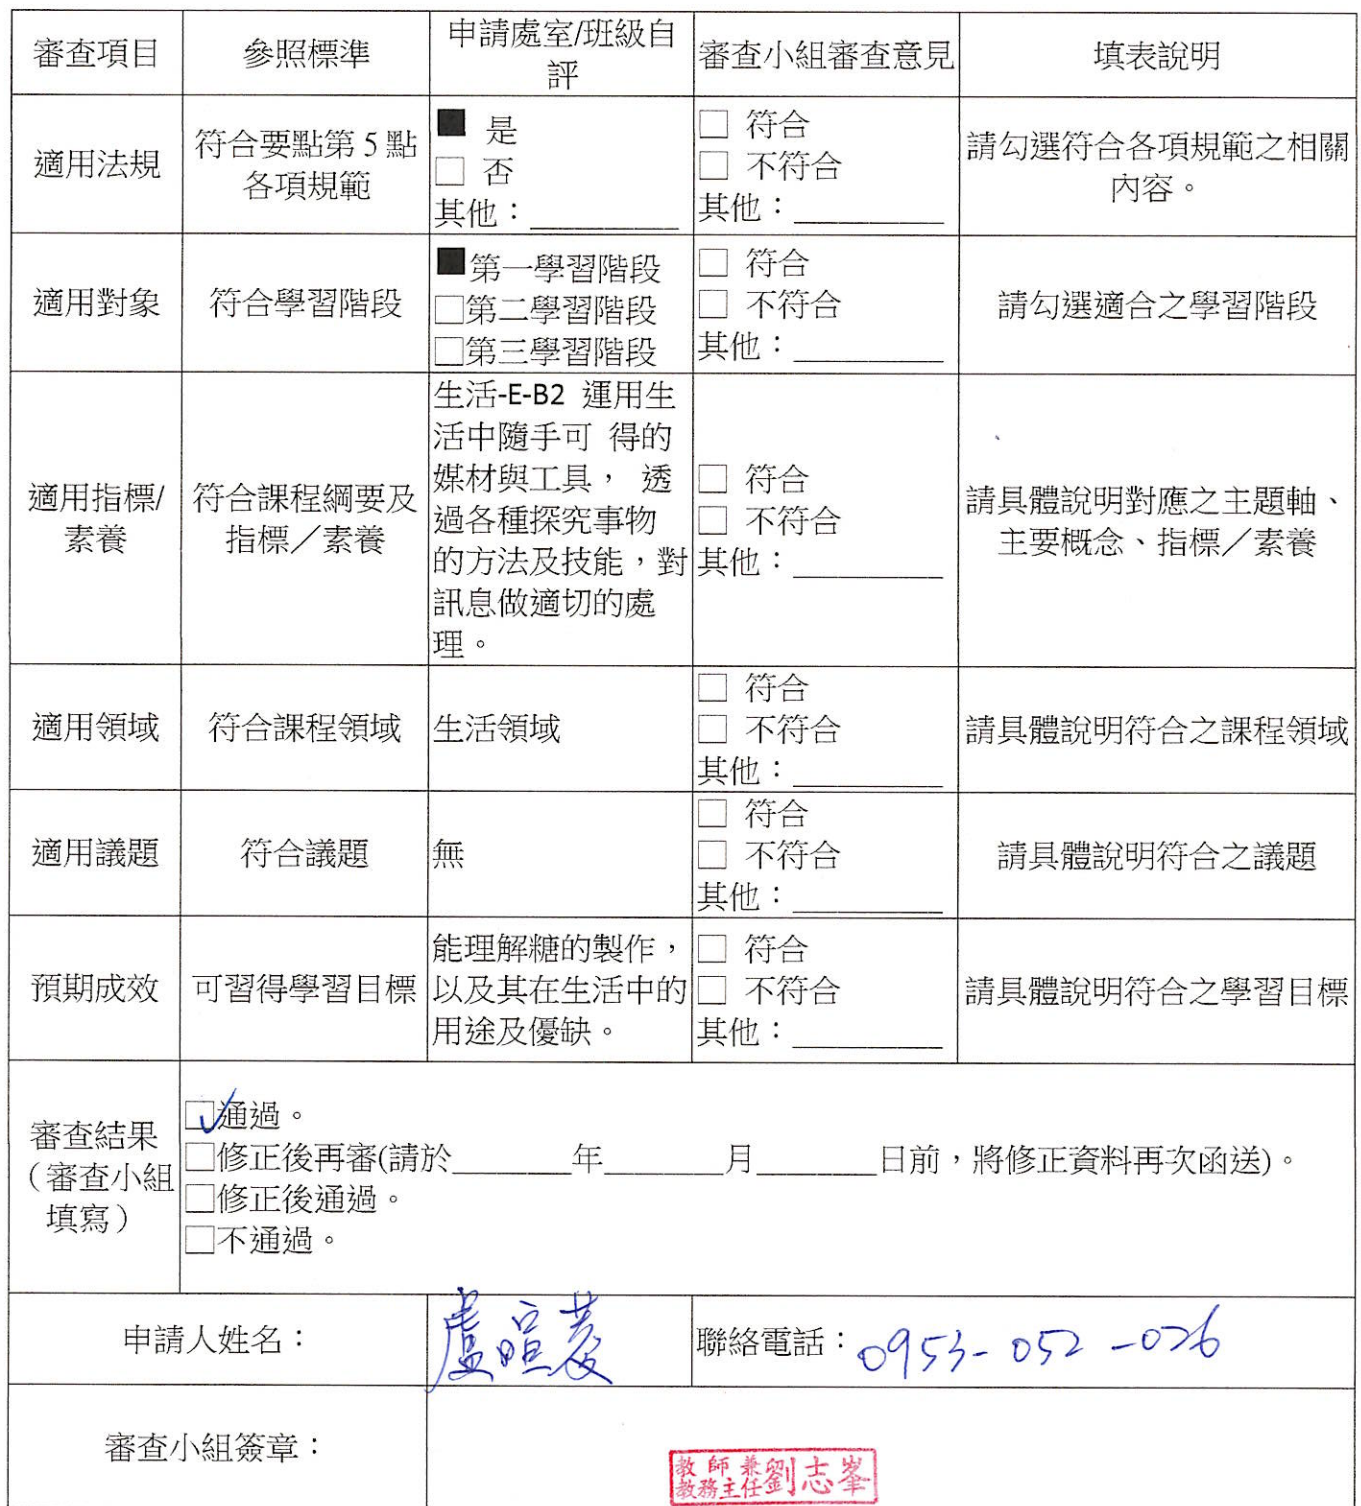 審查項目
參照標準
申請處室/班級自
評
審查小組審查意見
填表說明
適用法規
符合要點第 5 點
各項規範
■ 是
□ 否
其他：________
□ 符合
□ 不符合
其他：________
請勾選符合各項規範之相關
內容。
適用對象
符合學習階段
■第一學習階段
□第二學習階段
□第三學習階段
□ 符合
□ 不符合
其他：________
請勾選適合之學習階段
適用指標/
素養
符合課程綱要及
指標／素養
生活-E-B2 運用生
活中隨手可 得的
媒材與工具， 透
過各種探究事物
的方法及技能，對
訊息做適切的處
理。
□ 符合
□ 不符合
其他：________
請具體說明對應之主題軸、
主要概念、指標／素養
適用領域
符合課程領域
生活領域
□ 符合
□ 不符合
其他：________
請具體說明符合之課程領域
適用議題
符合議題
無
□ 符合
□ 不符合
其他：________
請具體說明符合之議題
預期成效
可習得學習目標
能理解糖的製作，
以及其在生活中的
用途及優缺。
□ 符合
□ 不符合
其他：________
請具體說明符合之學習目標
審查結果
（審查小組
填寫）
☑通過。
□修正後再審(請於_______年_______月_______日前，將修正資料再次函送)。
□修正後通過。
□不通過。
申請人姓名：
盧暄菱
聯絡電話：0953-052-026
審查小組簽章：
教師兼
教務主任劉志峯